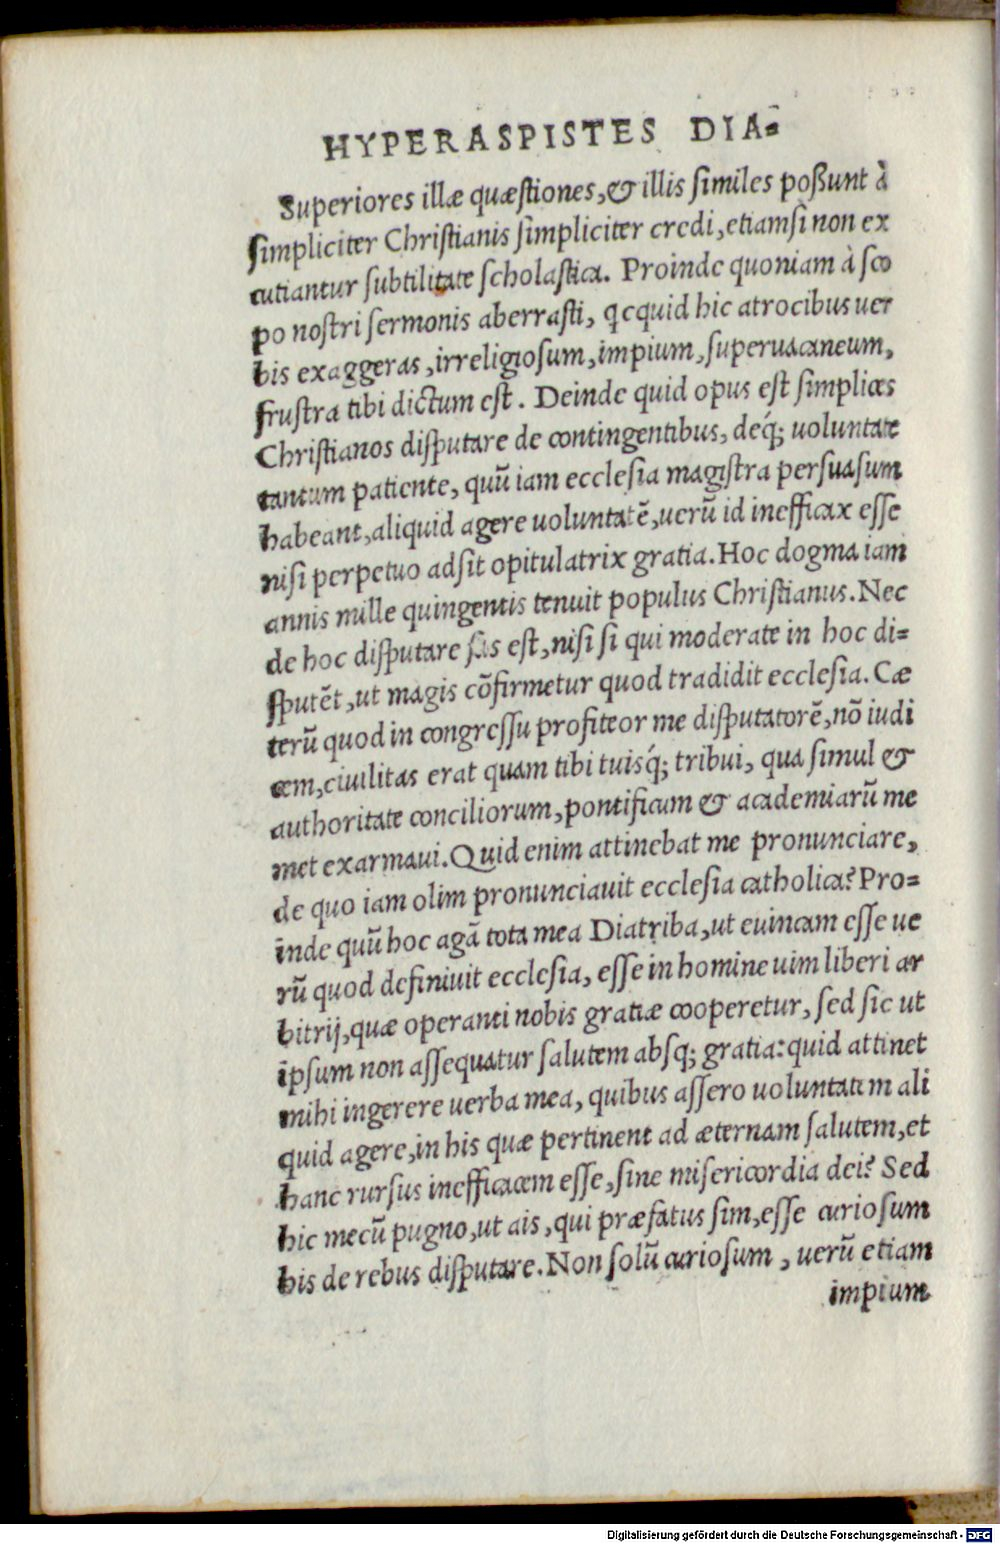 HYPERASPISTES DIA=
Superiores illæ quæstiones, & illis similes possunt à
simpliciter Christianis simpliciter credi, etiamsi non ex
cutiantur subtilitate scholastica. Proinde quoniam à sco
po nostri sermonis aberrasti, qcquid hic atrocibus uer
bis exaggeras, irreligiosum, impium, superuacaneum,
frustra tibi dictum est. Deinde quid opus est simplices
Christianos disputare de contingentibus, deq́; uoluntate
tantum patiente, quũ iam ecclesia magistra persuasum
habeant, aliquid agere uoluntatẽ, uerũ id inefficax esse
nisi perpetuo adsit opitulatrix gratia. Hoc dogma iam
annis mille quingentis tenuit populus Christianus. Nec
de hoc disputare fas est, nisi si qui moderate in hoc di=
sputẽt, ut magis cõfirmetur quod tradidit ecclesia. Cæ
terũ quod in congressu profiteor me disputatorẽ, nõ iudi
cem, ciuilitas erat quam tibi tuisq́; tribui, qua simul &
authoritate conciliorum, pontificum & academiarũ me
met exarmaui. Quid enim attinebat me pronunciare,
de quo iam olim pronunciauit ecclesia catholica? Pro=
inde quũ hoc agã tota mea Diatriba, ut euincam esse ue
rũ quod definiuit ecclesia, esse in homine uim liberi ar
bitrij, quæ operanti nobis gratiæ cooperetur, sed sic ut
ipsum non assequatur salutem absq; gratia: quid attinet
mihi ingerere uerba mea, quibus assero uoluntatem ali
quid agere, in his quæ pertinent ad æternam salutem, et
hanc rursus inefficacem esse, sine misericordia dei? Sed
hic mecũ pugno, ut ais, qui præfatus sim, esse curiosum
his de rebus disputare. Non solũ curiosum, uerũ etiam
impium
Digitalisierung gefördert durch die Deutsche Forschungsgemeinschaft - DFG